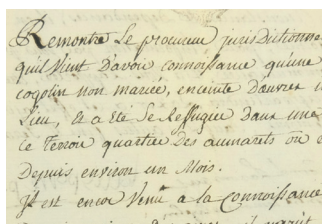 Remontre Le procureur jurisdictionne
quil Vient d'avoir connoissance qu'une
cogolin non mariée, enceinte d'œuvres
Lieu, & a Eté Se Reffugiée dans une
ce Terroir quartier Des aumarets ou
Depuis environ un Mois.
Jl est encor Venu a la Connoissance